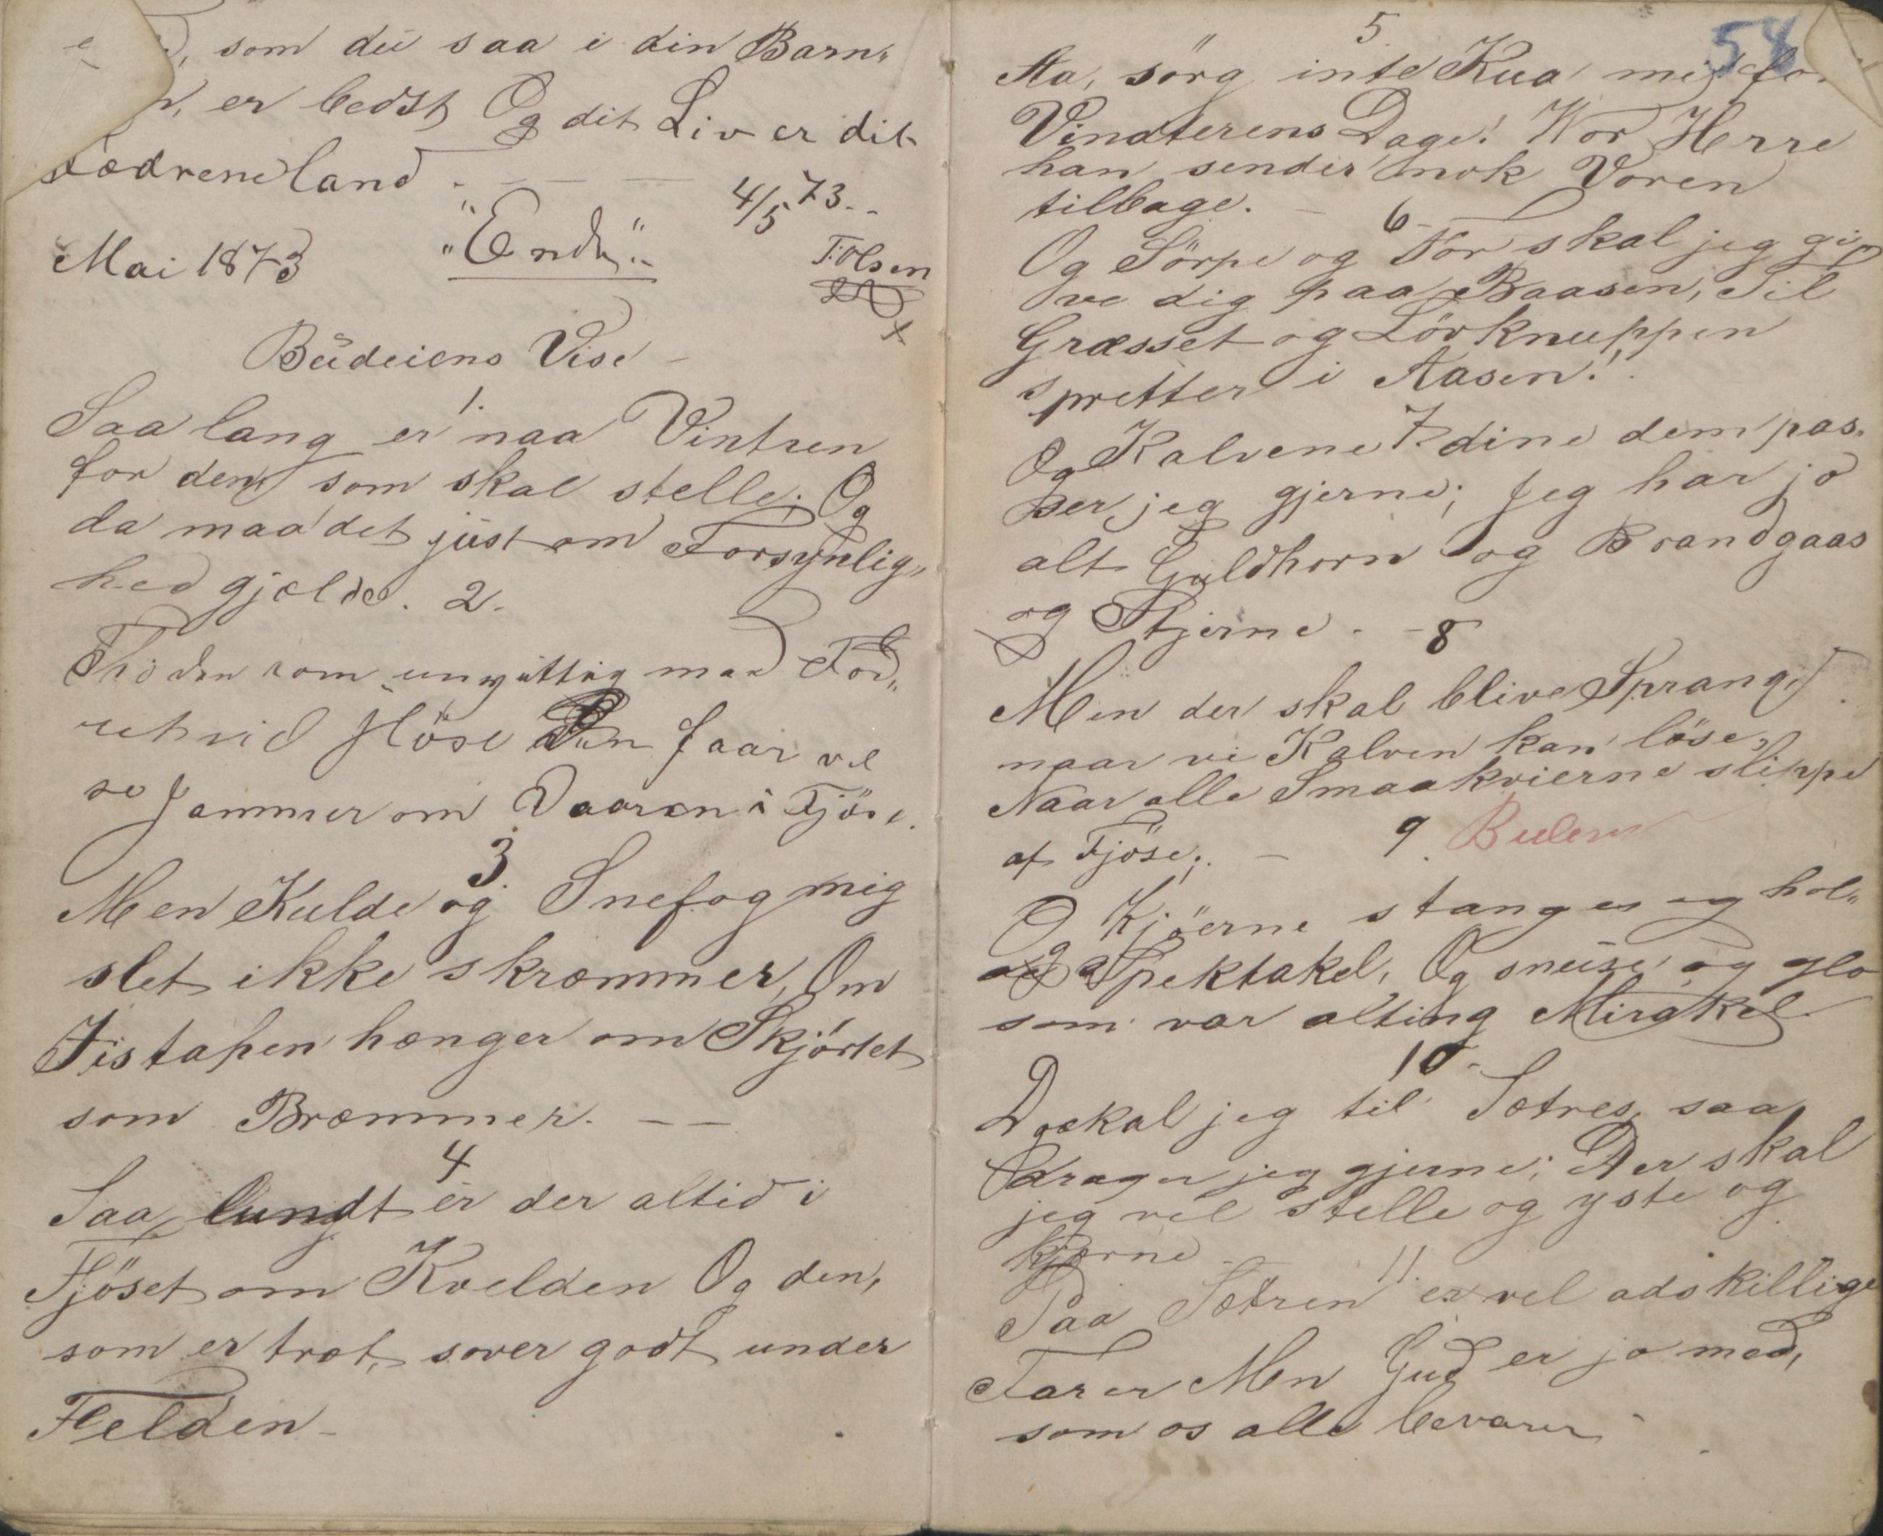 som du saa i din Barn-
er bedst Og dit Liv er dit
Fædreneland
4/5 73.
Mai 1873 "Ende"
T. Olsen
Büdeiens Vise
1.
Saa lang er naa Vintren
for den, som skal stelle; Og
da maa det just om Forsynlig-
hed gjælde. 2.
Thi den som unyttig med Fod-
ret vil Höse Den faar vel
se Jammer om Vaaren i Fjöse.
3.
Men Kulde og Snefog mig
slet ikke skræmmer, Om
Jistapen hænger om Skjörtet
som Bræmmer.
4
Saa lundt er der altid i
Fjöset om Kvelden Og den,
som er træt, sover godt under
Felden
58
5
Aa, sörg inte Kua mi for
Vindterens Dage! Vor Herre
han sender nok Voren
tilbage.
6
Og Sörpe og For skal jeg gi-
ve dig paa Baasen, Til
Græsset og Lövknuppen
spretter i Aasen!
7
Og Kalvene dine dem pas-
ser jeg gjerne; Jeg har jo
alt Guldhorn og Brandgaas
og Stjerne. 8
Men der skal blive Sprang,
naar vi Kalven kan löse,
Naar alle Smaakvierne slippe
af Fjöse;
9.
Og Kjöerne stanges og hol-
de Spektakel, Og sneise og glo
som var alting Mirakel.
10
Da skal jeg til Sætres, saa
drager jeg gjerne; Der skal
jeg vel stelle og yste og
kjærne
11
Paa Sætren er vel adskillige
Farer Men Gud er jo med,
som os alle bevarer